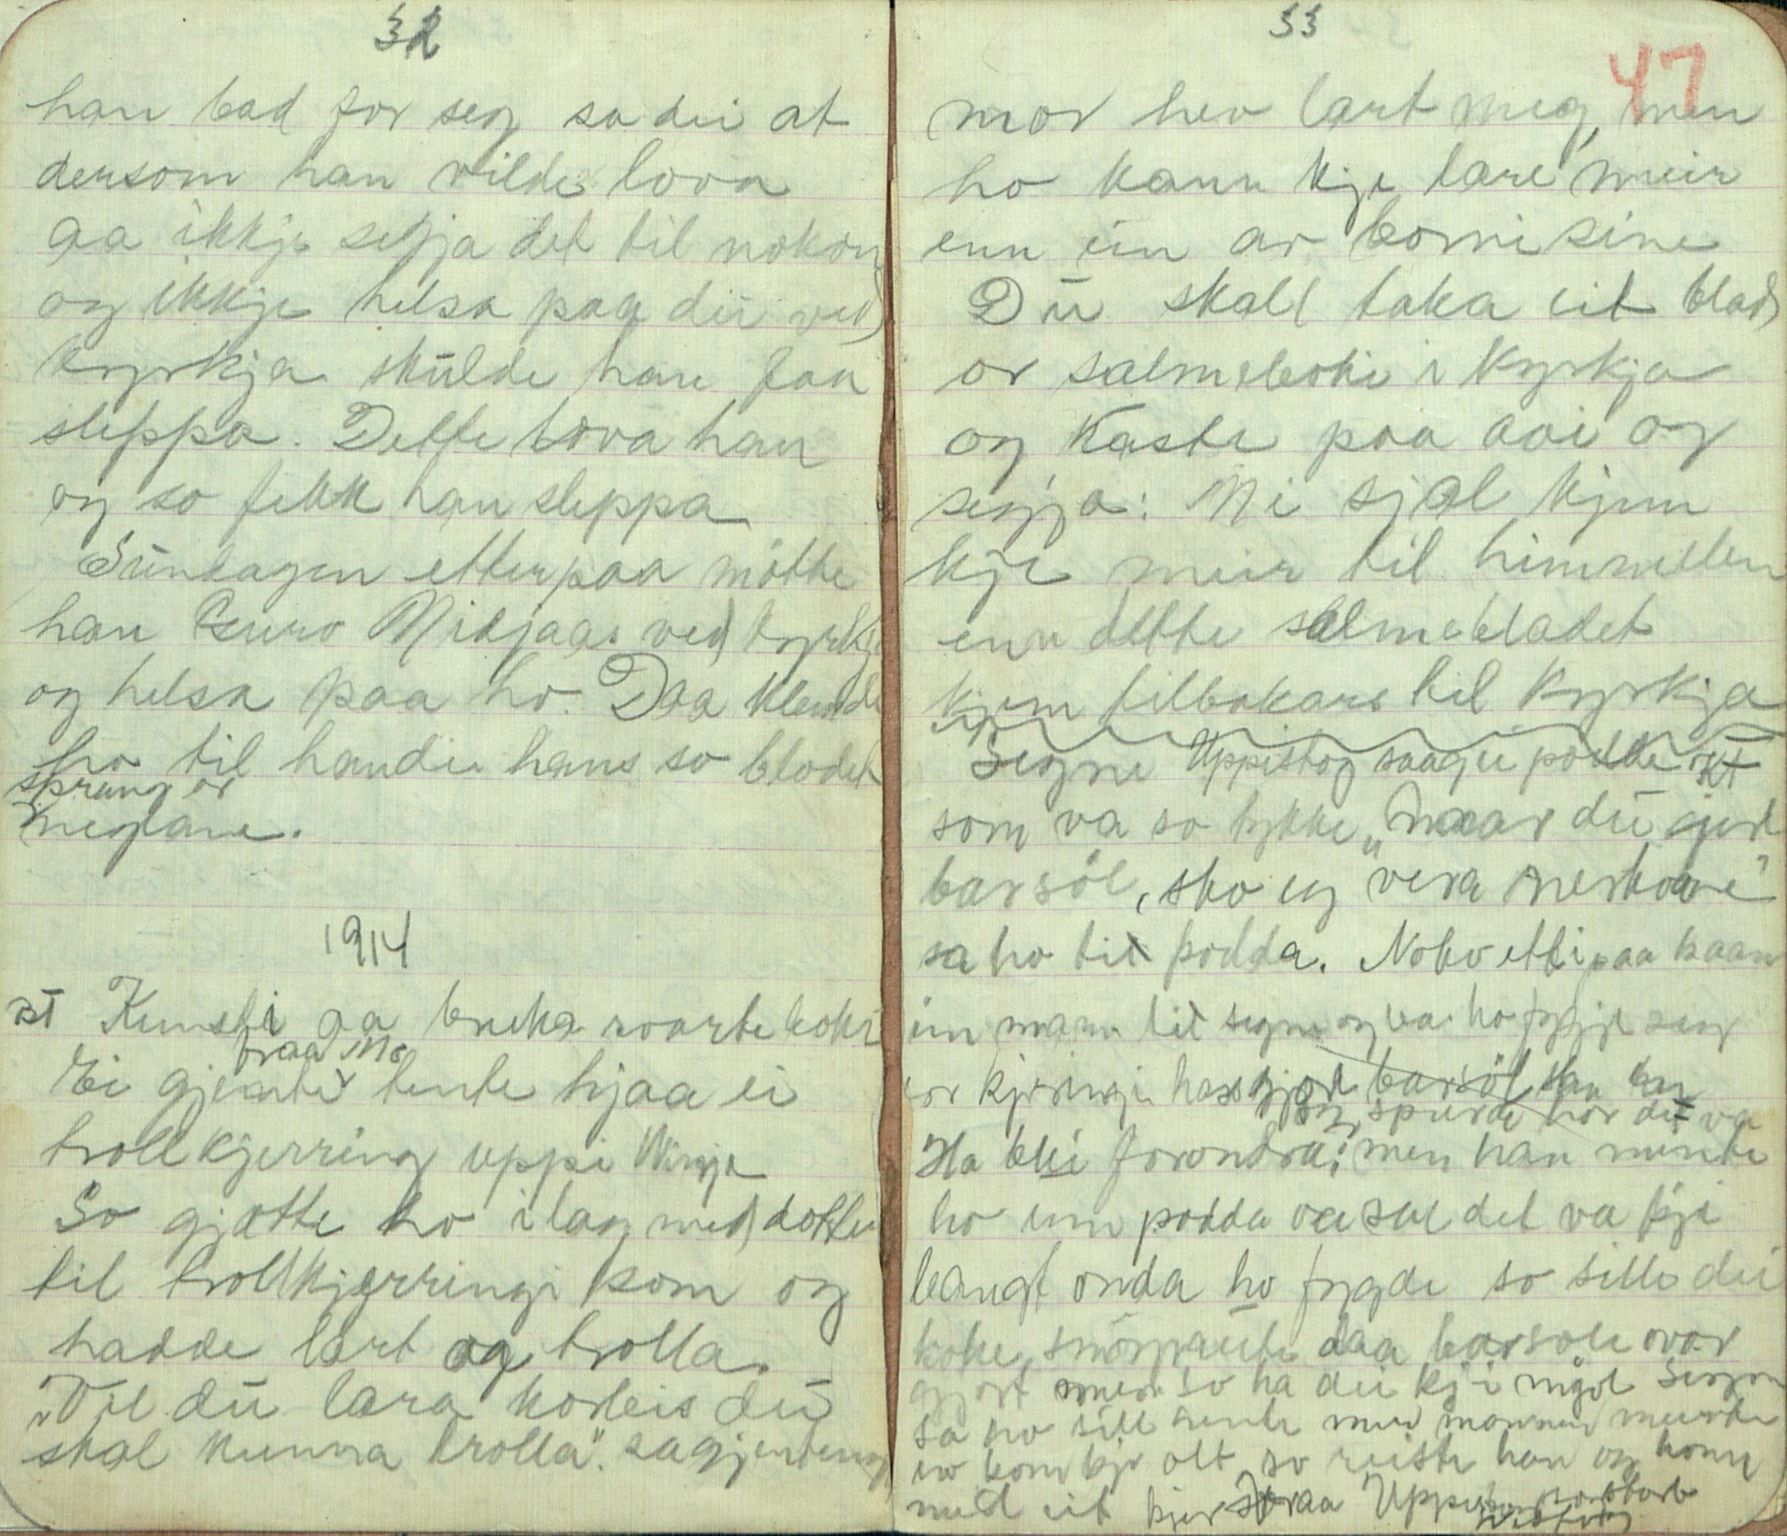 32
han bad for seg sa dei at
dersom han vilde lova
aa ikkje segja det til nokon
og ikkje helsa paa dei ved
kyrkja skulde han faa
sleppa. Dette lova han
og so fekk han sleppa
Sundagen etterpaa møtte
han Guro Midjaas ved kyrkja
og helsa paa ho. Daa klemde
ho til handi hans so blodet
sprang or
neglane.
1914
Kunsti aa bruka svarteboki
fraa Mo
Ei gjente tente hjaa ei
trollkjerring uppi Vinje
So gjætte ho i lag med dotter
til trollkjerringi som og
hadde lært og trolla.
"Vil du læra korleis du
skal kunna trolla". sa gjenteung
33
47
mor hev lært meg, men
ho kann kje lære meir
enn ein av borni sine
Du skall taka eit blad
or salmeboki i kyrkja
og kaste paa aai og
segja: Mi sjæl kjem
kje meir til himmelen
enn dette salmebladet
kjem tilbakars til kyrkja
Signe Uppistog saag ei podde
som va so tykke "Naar du gjer
barsöl, sko eg vera nerkone"
sa ho til podda. Noko ettipaa kaam
ein mann til Signe og ba ho fygje seg
for kjeringi hass gjor barsöl
og spurde hor det va
Ho blei forondra; men han minte
ho um podda
langt onda ho fygde so sille dei
koke smörgraut daa barsöle var
gjort men so ha dei kji mjöl Signe
sa ho sill hente mjöl mannen meinte
so reiste han og kom
med eit kjer fraa Uppistog